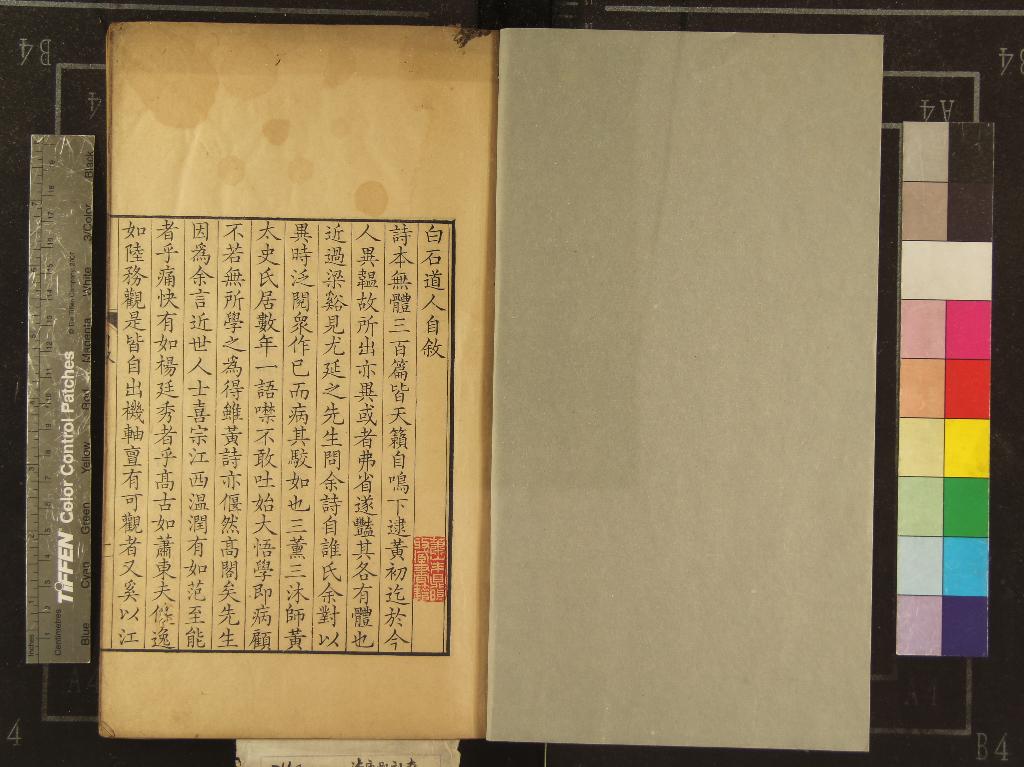 白石道人自敘
詩本無體三百篇皆天籟自鳴下逮黃初迄於今
人異韞故所出亦異或者弗省遂豔其各有體也
近過梁谿見尤延之先生問余詩自誰氏余對以
異時泛閱衆作已而病其駁如也三薰三沐師黃
太史氏居數年一語噤不敢吐始大悟學即病顧
不若無所學之爲得雖黃詩亦偃然高閣矣先生
因爲余言近世人士喜宗江西溫潤有如范至能
者乎痛快有如楊廷秀者乎高古如蕭東夫俊逸
如陸務觀是皆自出機軸亶有可觀者又奚以江
TIFFEN Color Control Patches
© The Tiffen Company, 2007
Inches
Centimetres
Blue
Cyan
Green
Yellow
Red
Magenta
White
3/Color
Black
B4
A4
A4
B4